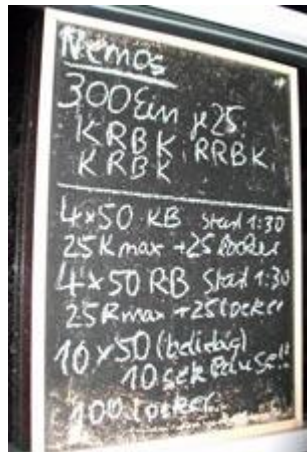 Nemos
300 Ein je 25:
KRBK, RRBK,
KRBK
4x50 KB Start 1:30
25 Kmax + 25 locker
4x50 RB Start 1:30
25 Rmax + 25 locker
10x50 (beliebig)
10 sek Pause!!
100 locker